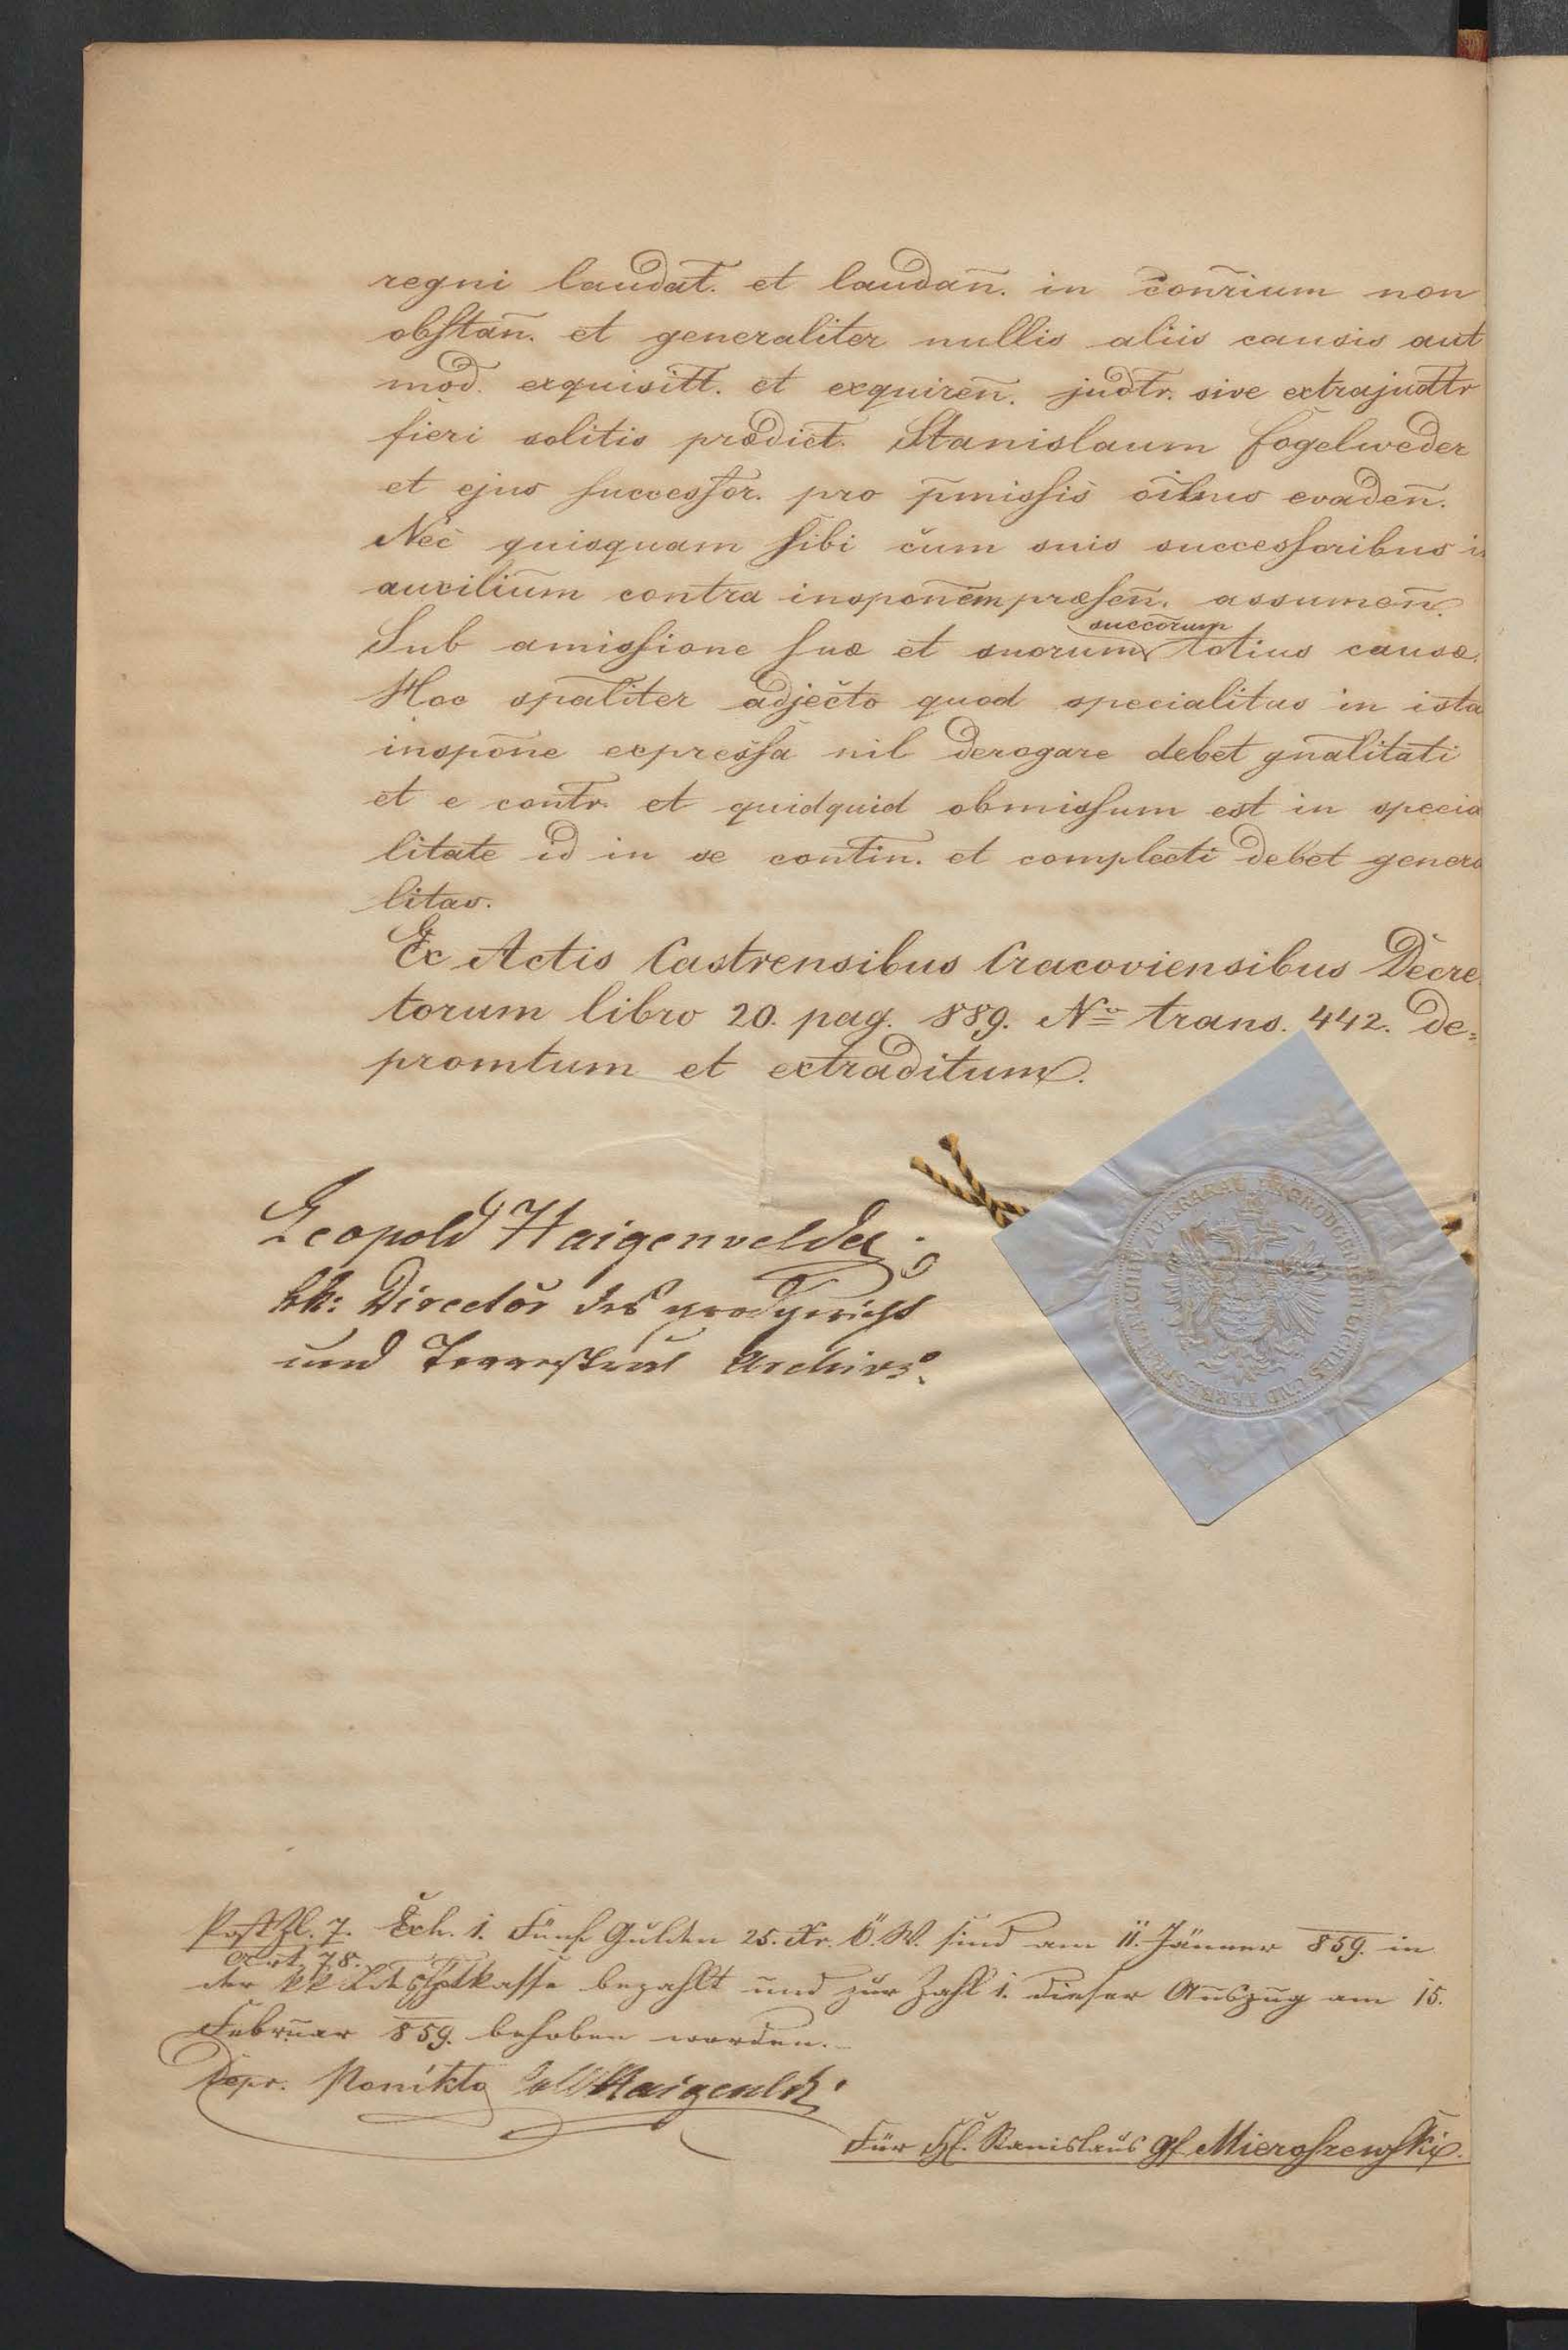 regni laudat. et laudan̄. in con̄rium non
obstan̄. et generaliter nullis aliis causis aut
mod. exquisitt. et exquiren̄. judtr. sive extrajudttr
fieri solitis prædict. Stanislaum Fogelweder
et ejus successor. pro p̄missis oībus evaden̄.
Nec quisquam sibi cum suis successoribus in
auxilium contra insponēm præsen̄. assumen̄.
succorum
Sub amissione suæ et suorum totius causæ.
Hoc spāliter adjecto quod specialitas in ista
inspōne expressa nil derogare debet gnālitati
et e contr. et quidquid obmissum est in specia
litate id in se contin. et complecti debet genera
litas.
Ex Actis Castrensibus Cracoviensibus Decre
torum libro 20. pag. 889. Nro trans. 442. de=
promtum et extraditum.
Leopold Haigenvelder
kk: Director des grodgerichts
und Terrestral Archivs.
ZU KRAKAU GRODGERICHTLICHES UND TERRESTRAL ARCHIV
Post Zl. 7. Exh. 1. Fünf Gulden 25. Xr. Ö. W. sind am 11. Jänner 859. in
Art. 78.
der kk Lds Hptkasse bezahlt und zur Zahl 1. dieser Auszug am 15.
Februar 859. behoben worden.
Ponikło
Für H. Stanislaus Gf. Mieroszewski.